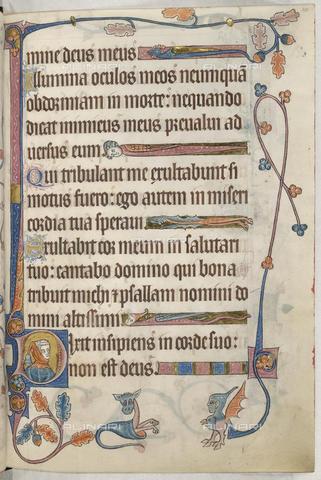 mine deus meus
Illumina oculos meos ne umquā
obdormiam in morte: nequando
dicat inimicus meus preualui ad
uersus eum
Qui tribulant me exultabunt si
motus fuero: ego autem in miseri
cordia tua speraui
Exultabit cor meum in salutari
tuo: cantabo domino qui bona
tribuit michi ⁊ psallam nomini do
mini altissimi
Dixit insipiens in corde suo:
non est deus.
ALINARI
ALINARI
ALINARI
ALINARI